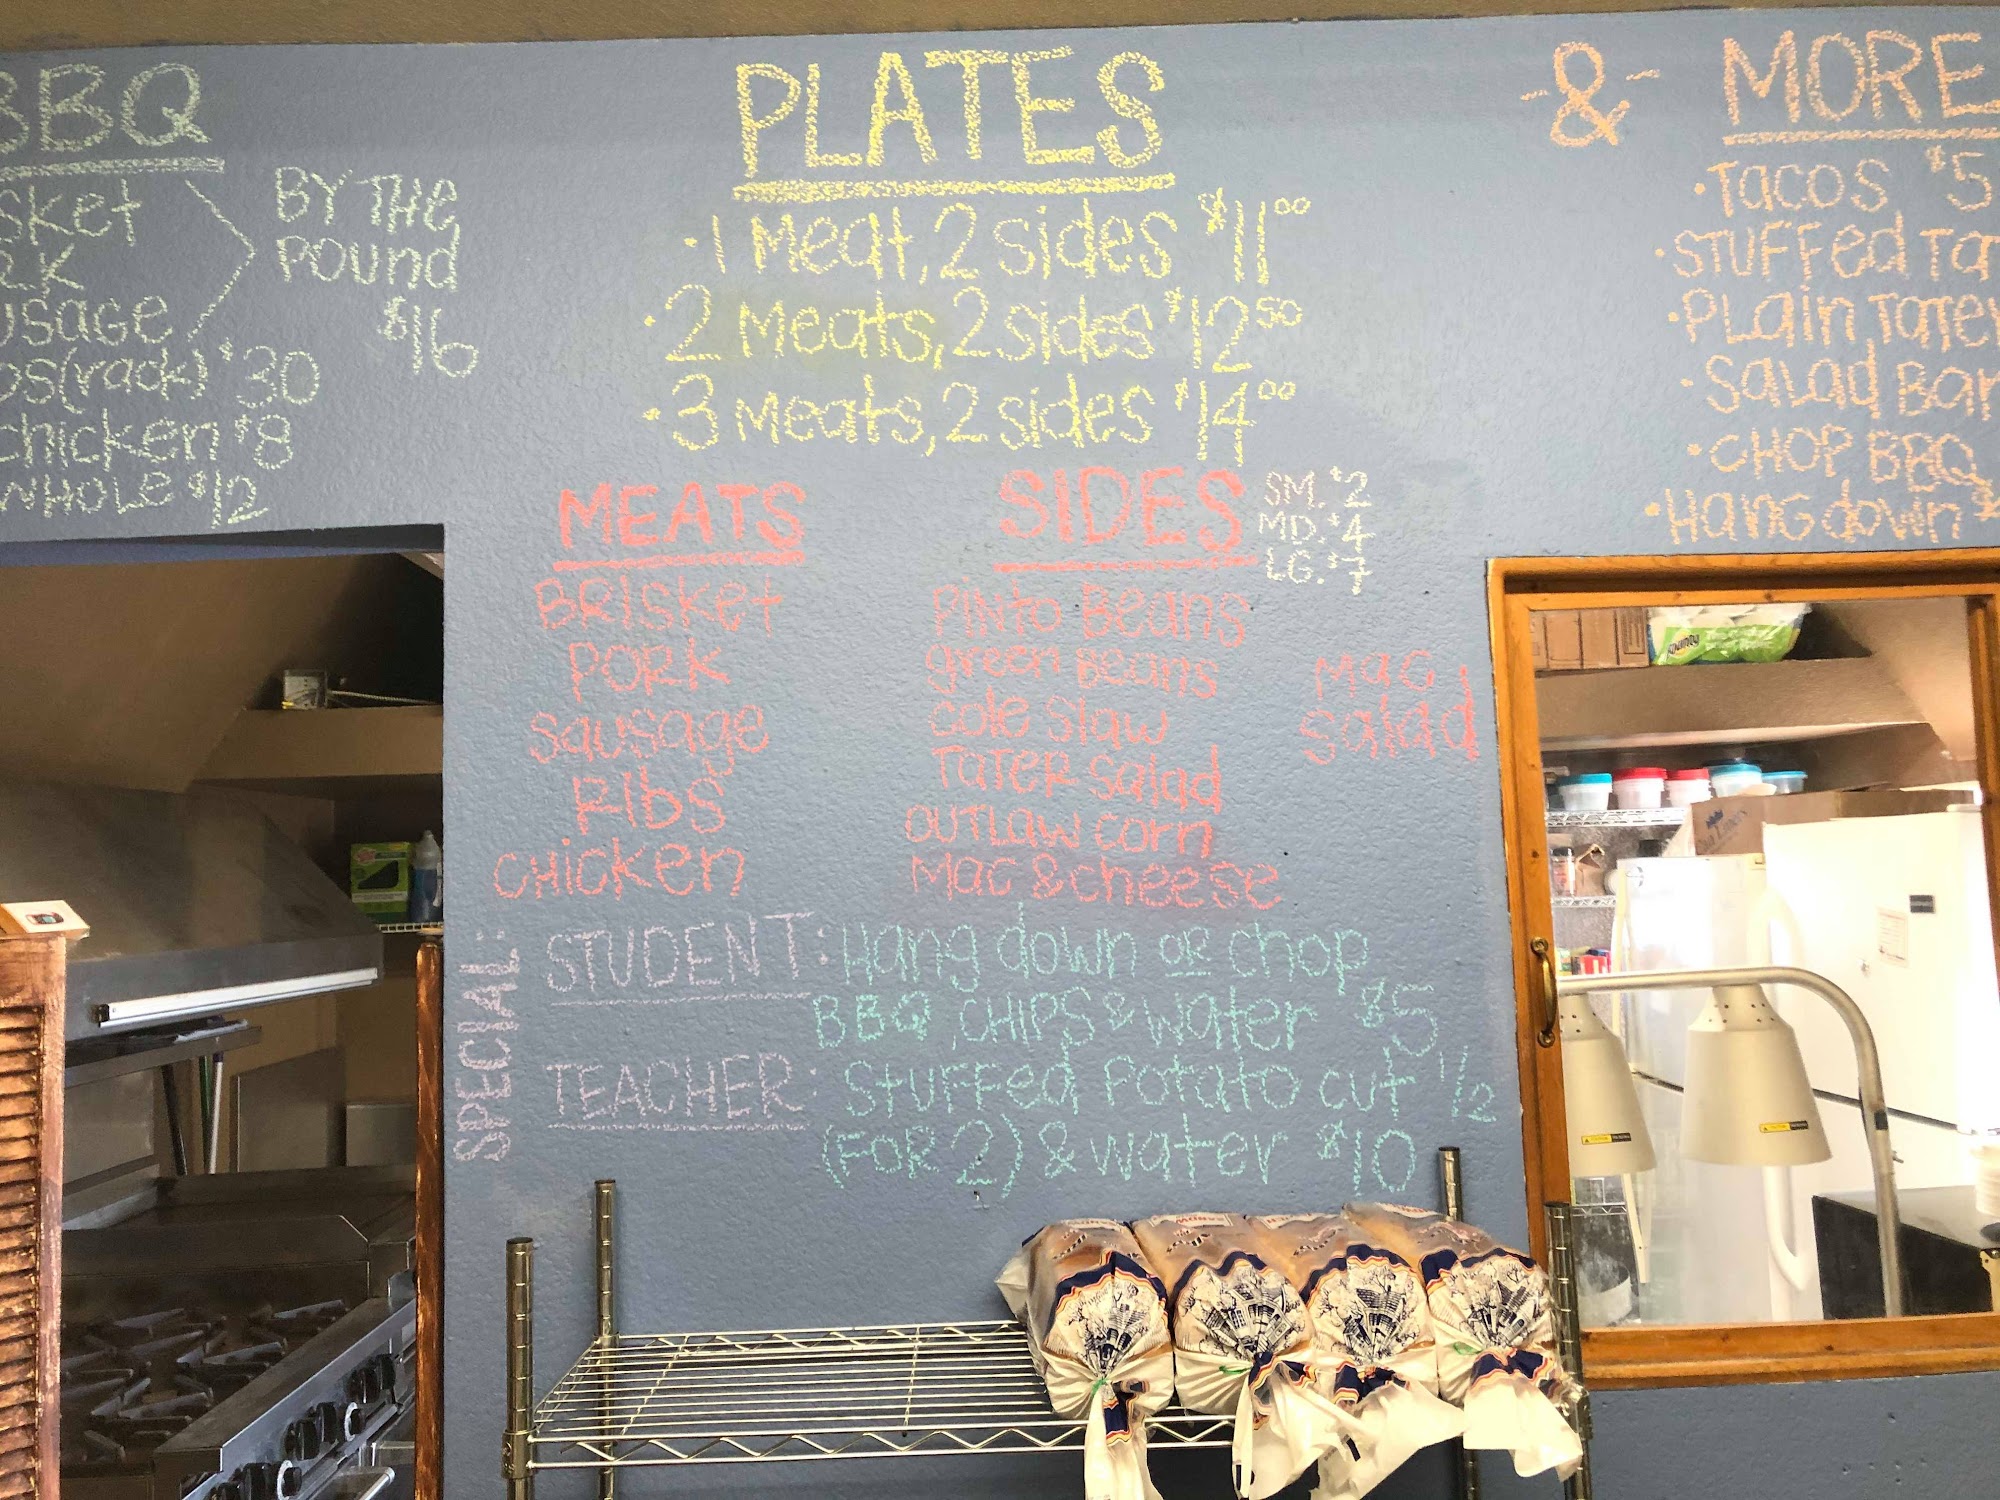 BBQ
BY THE
POUND
$16
(rack) $30
chicken $8
WHOLE $12
PLATES
• 1 Meat, 2 sides $11.00
• 2 Meats, 2 sides $12.50
• 3 Meats, 2 sides $14.00
-&- MORE
• Tacos $5
• STUFFed
• PLain Tater
• Salad Bar
• CHOP BBQ
• Hangdown $
MEATS
BRISKet
PORK
Sausage
RIbS
CHicken
SIDES
SM. $2
MD. $4
LG. $7
PINto Beans
green Beans
Cole Slaw
TaTER Salad
OUTLAW CORN
Mac & cheese
Mac
Salad
SPECIAL:
STUDENT: Hang down OR chop
BBQ, CHIPS & water $5
TEACHER: STUFFed Potato cut 1/2
(FOR 2) & water $10
Bounty